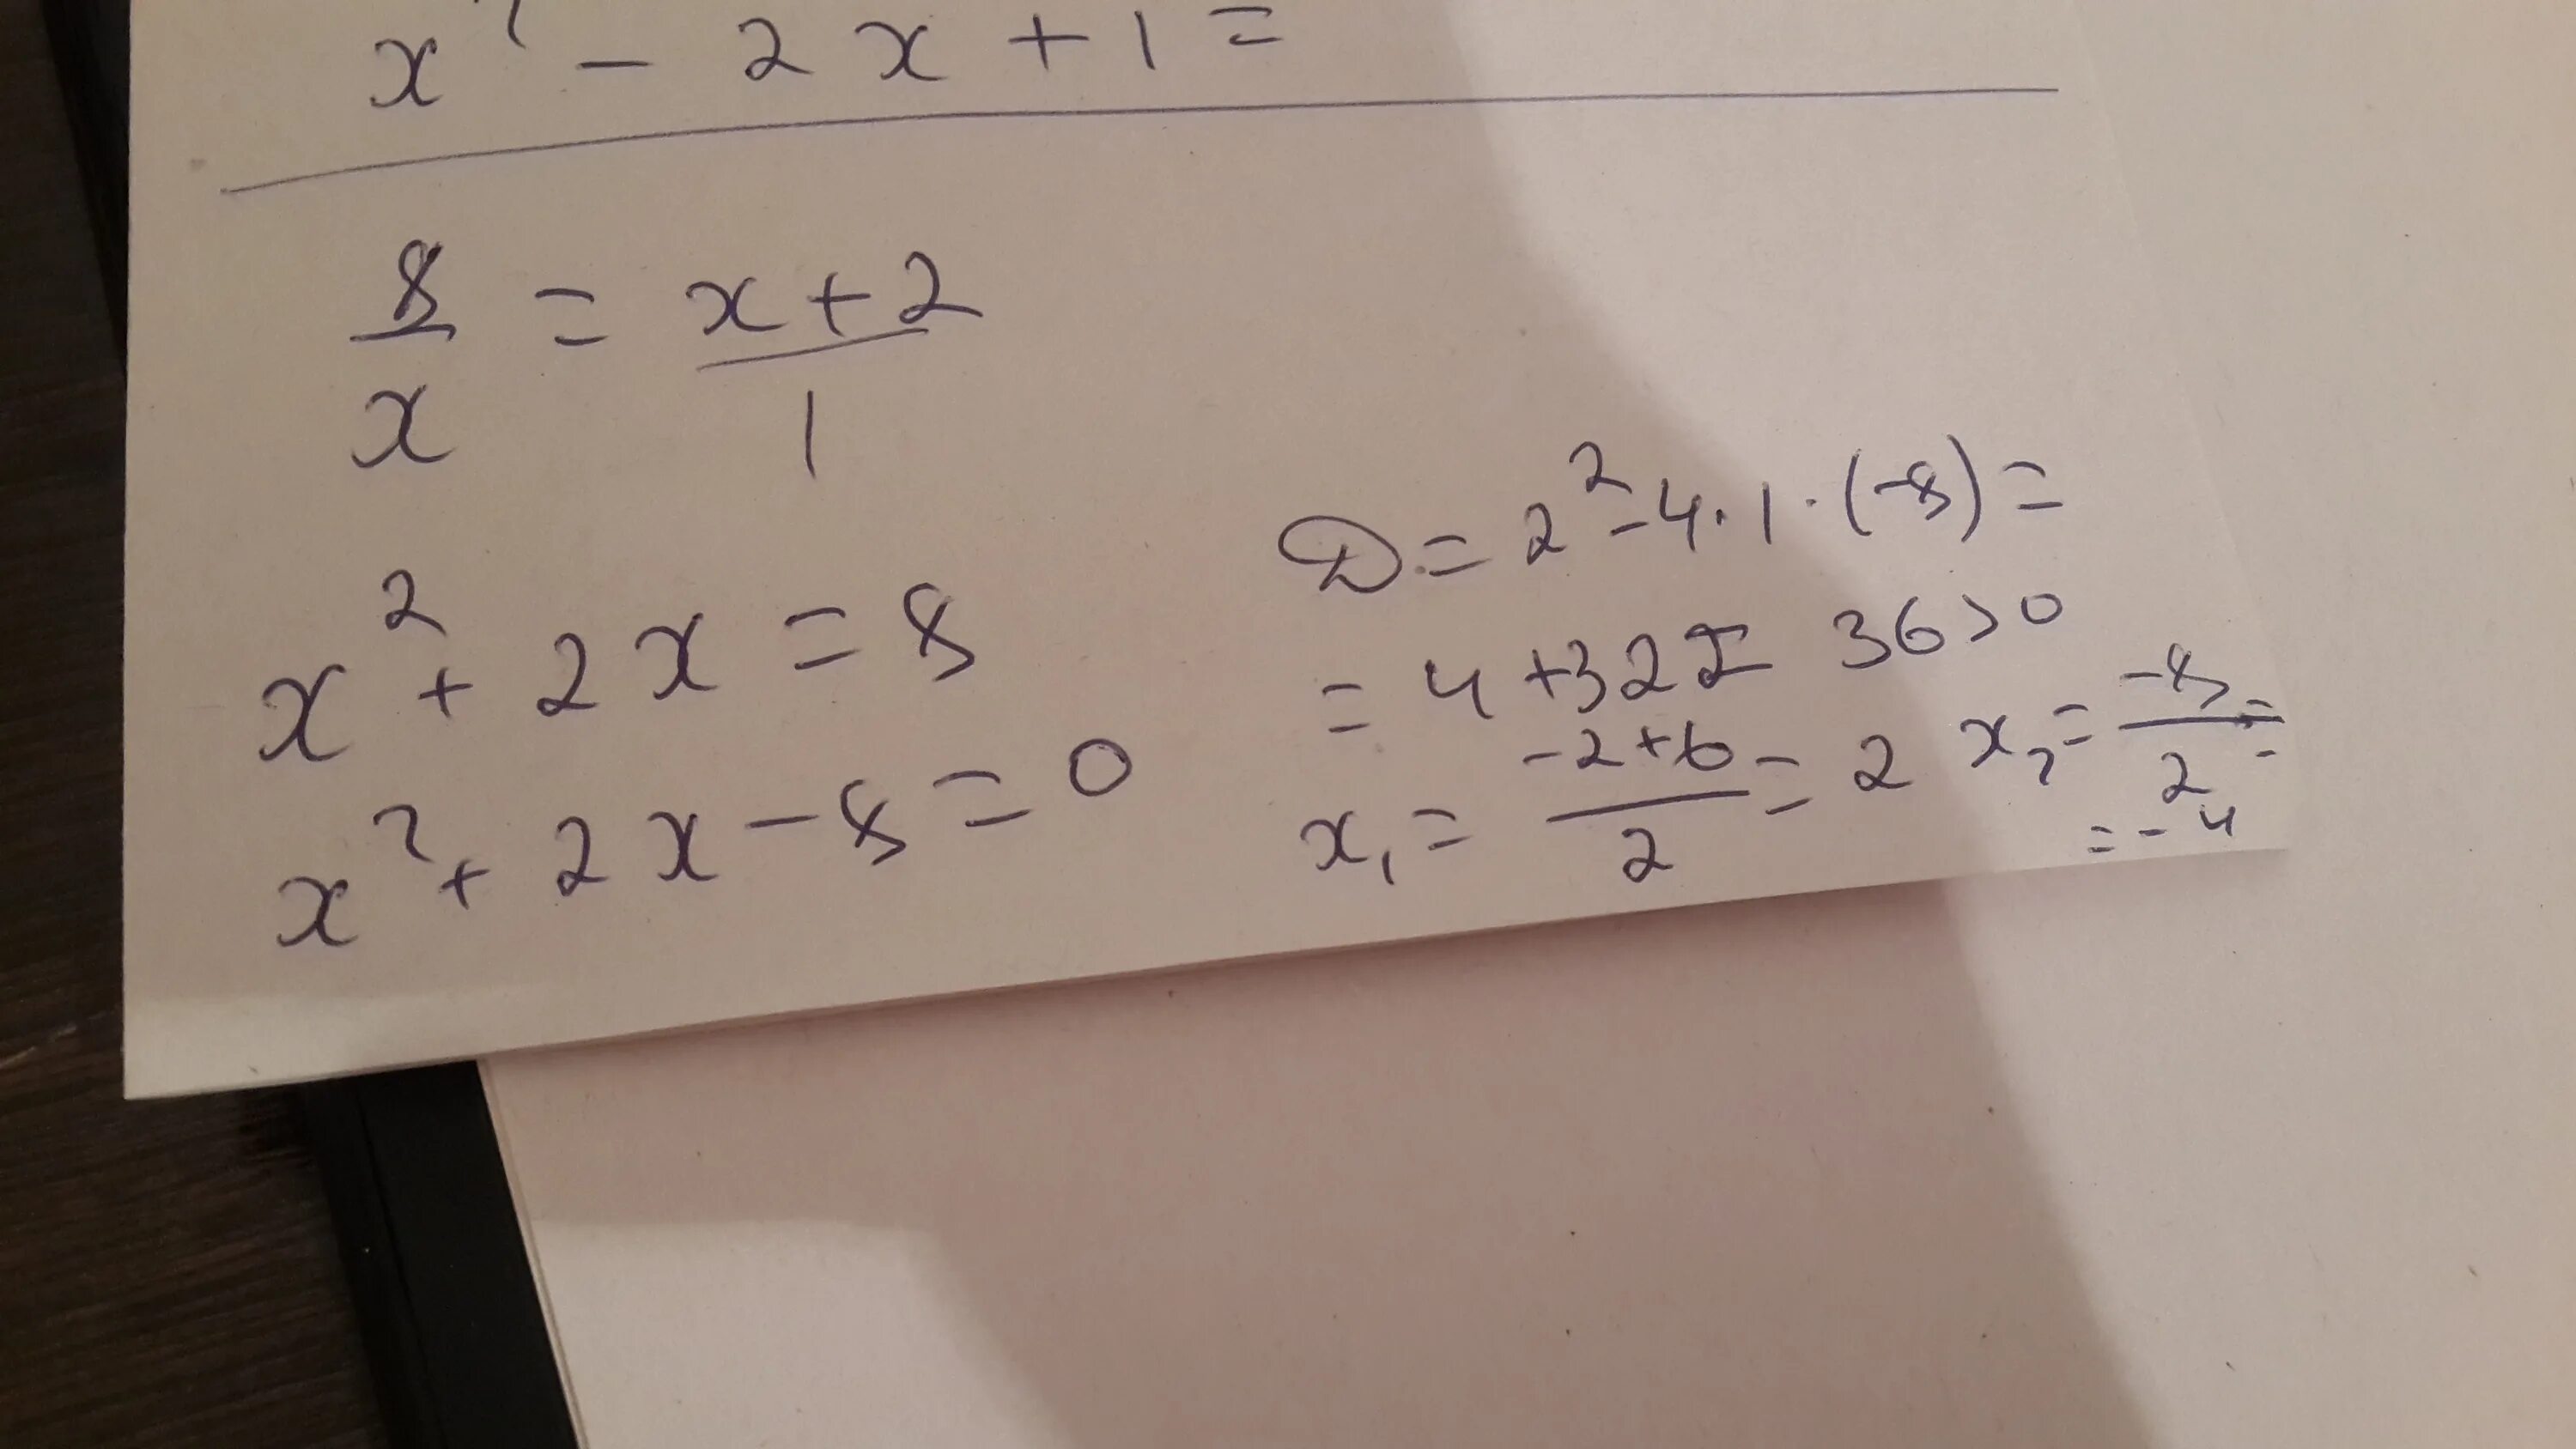 x² - 2x + 1 =
8/x = (x+2)/1
x² + 2x = 8
x² + 2x - 8 = 0
D = 2² - 4·1·(-8) =
= 4 + 32 = 36 > 0
x₁ = (-2+6)/2 = 2 x₂ = -8/2 =
= -4